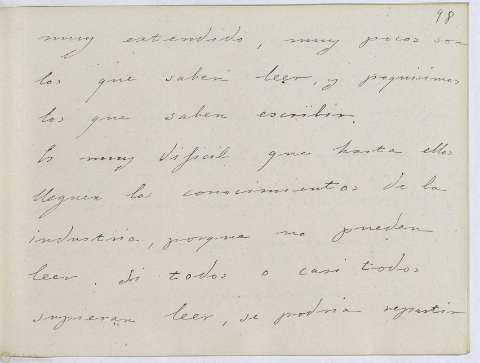 98
muy extendido, muy pocos son
los que saben leer, y poquisimos
los que saben escribir.
Es muy dificil que hasta ellos
lleguen los conocimientos de la
industria, porque no pueden
leer. Si todos o casi todos
supieran leer, se podria repartir